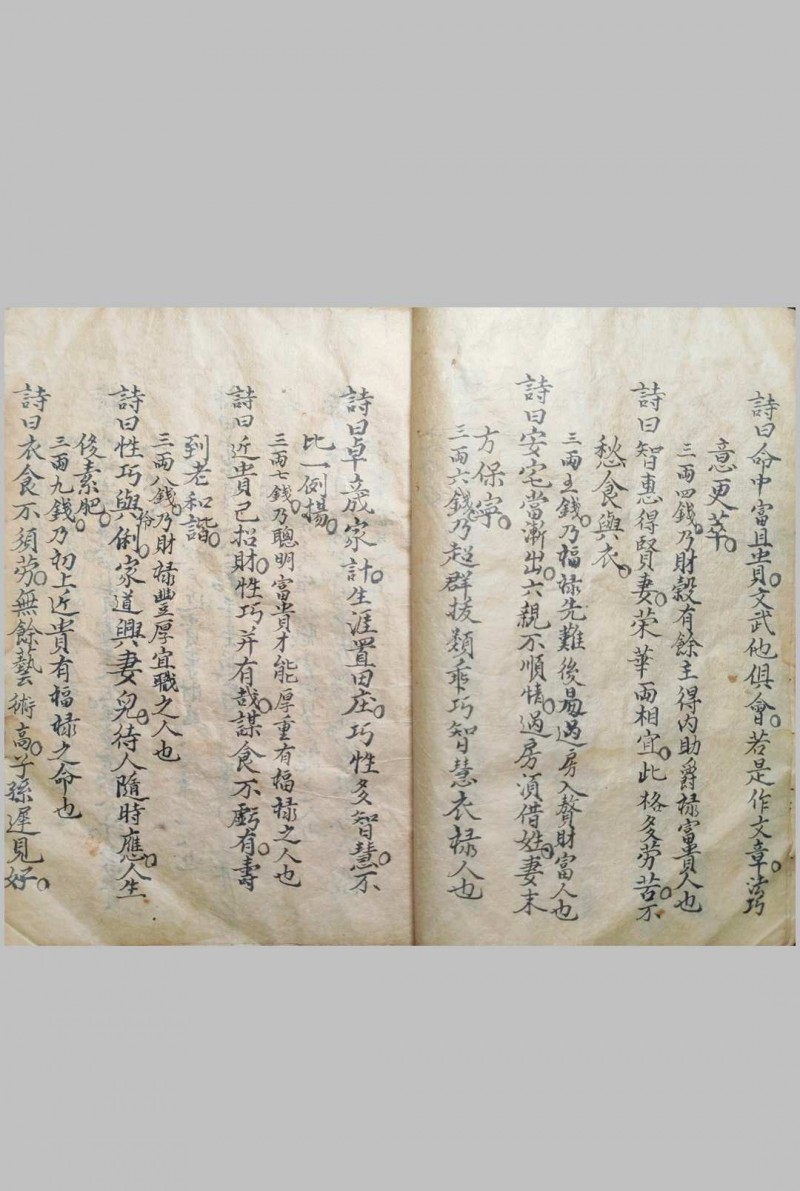 詩曰命中富且貴。文武他俱會。若是作文章。法巧
意更萃。
三両四錢。乃財穀有餘主得内助爵禄富貴人也
詩曰智惠得賢妻。荣華两相宜。此格多劳苦。不
愁食與衣。
三両五錢。乃福禄先難後易過房入贅財富人也
詩曰安宅當漸出。六親不順情。過房湏借姓。妻末
方保寧。
三両六錢乃超群拔類乖巧智慧衣禄人也
詩曰卓歳家計。生涯置田庄。巧性多智慧。不
比一例揚。
三両七錢。乃聰明富貴才能厚重有福禄之人也
詩曰近貴已招財。性巧并有哉。謀食不虧有。壽
到老和諧。
三両八錢。乃財禄豐厚宜職之人也
詩曰性巧與伶俐。家道興妻兒。待人隨時應。人生
後素肥。
三両九錢。乃初上近貴有福禄之命也
詩曰衣食不須劳。無餘藝術高。子孫遲見好。